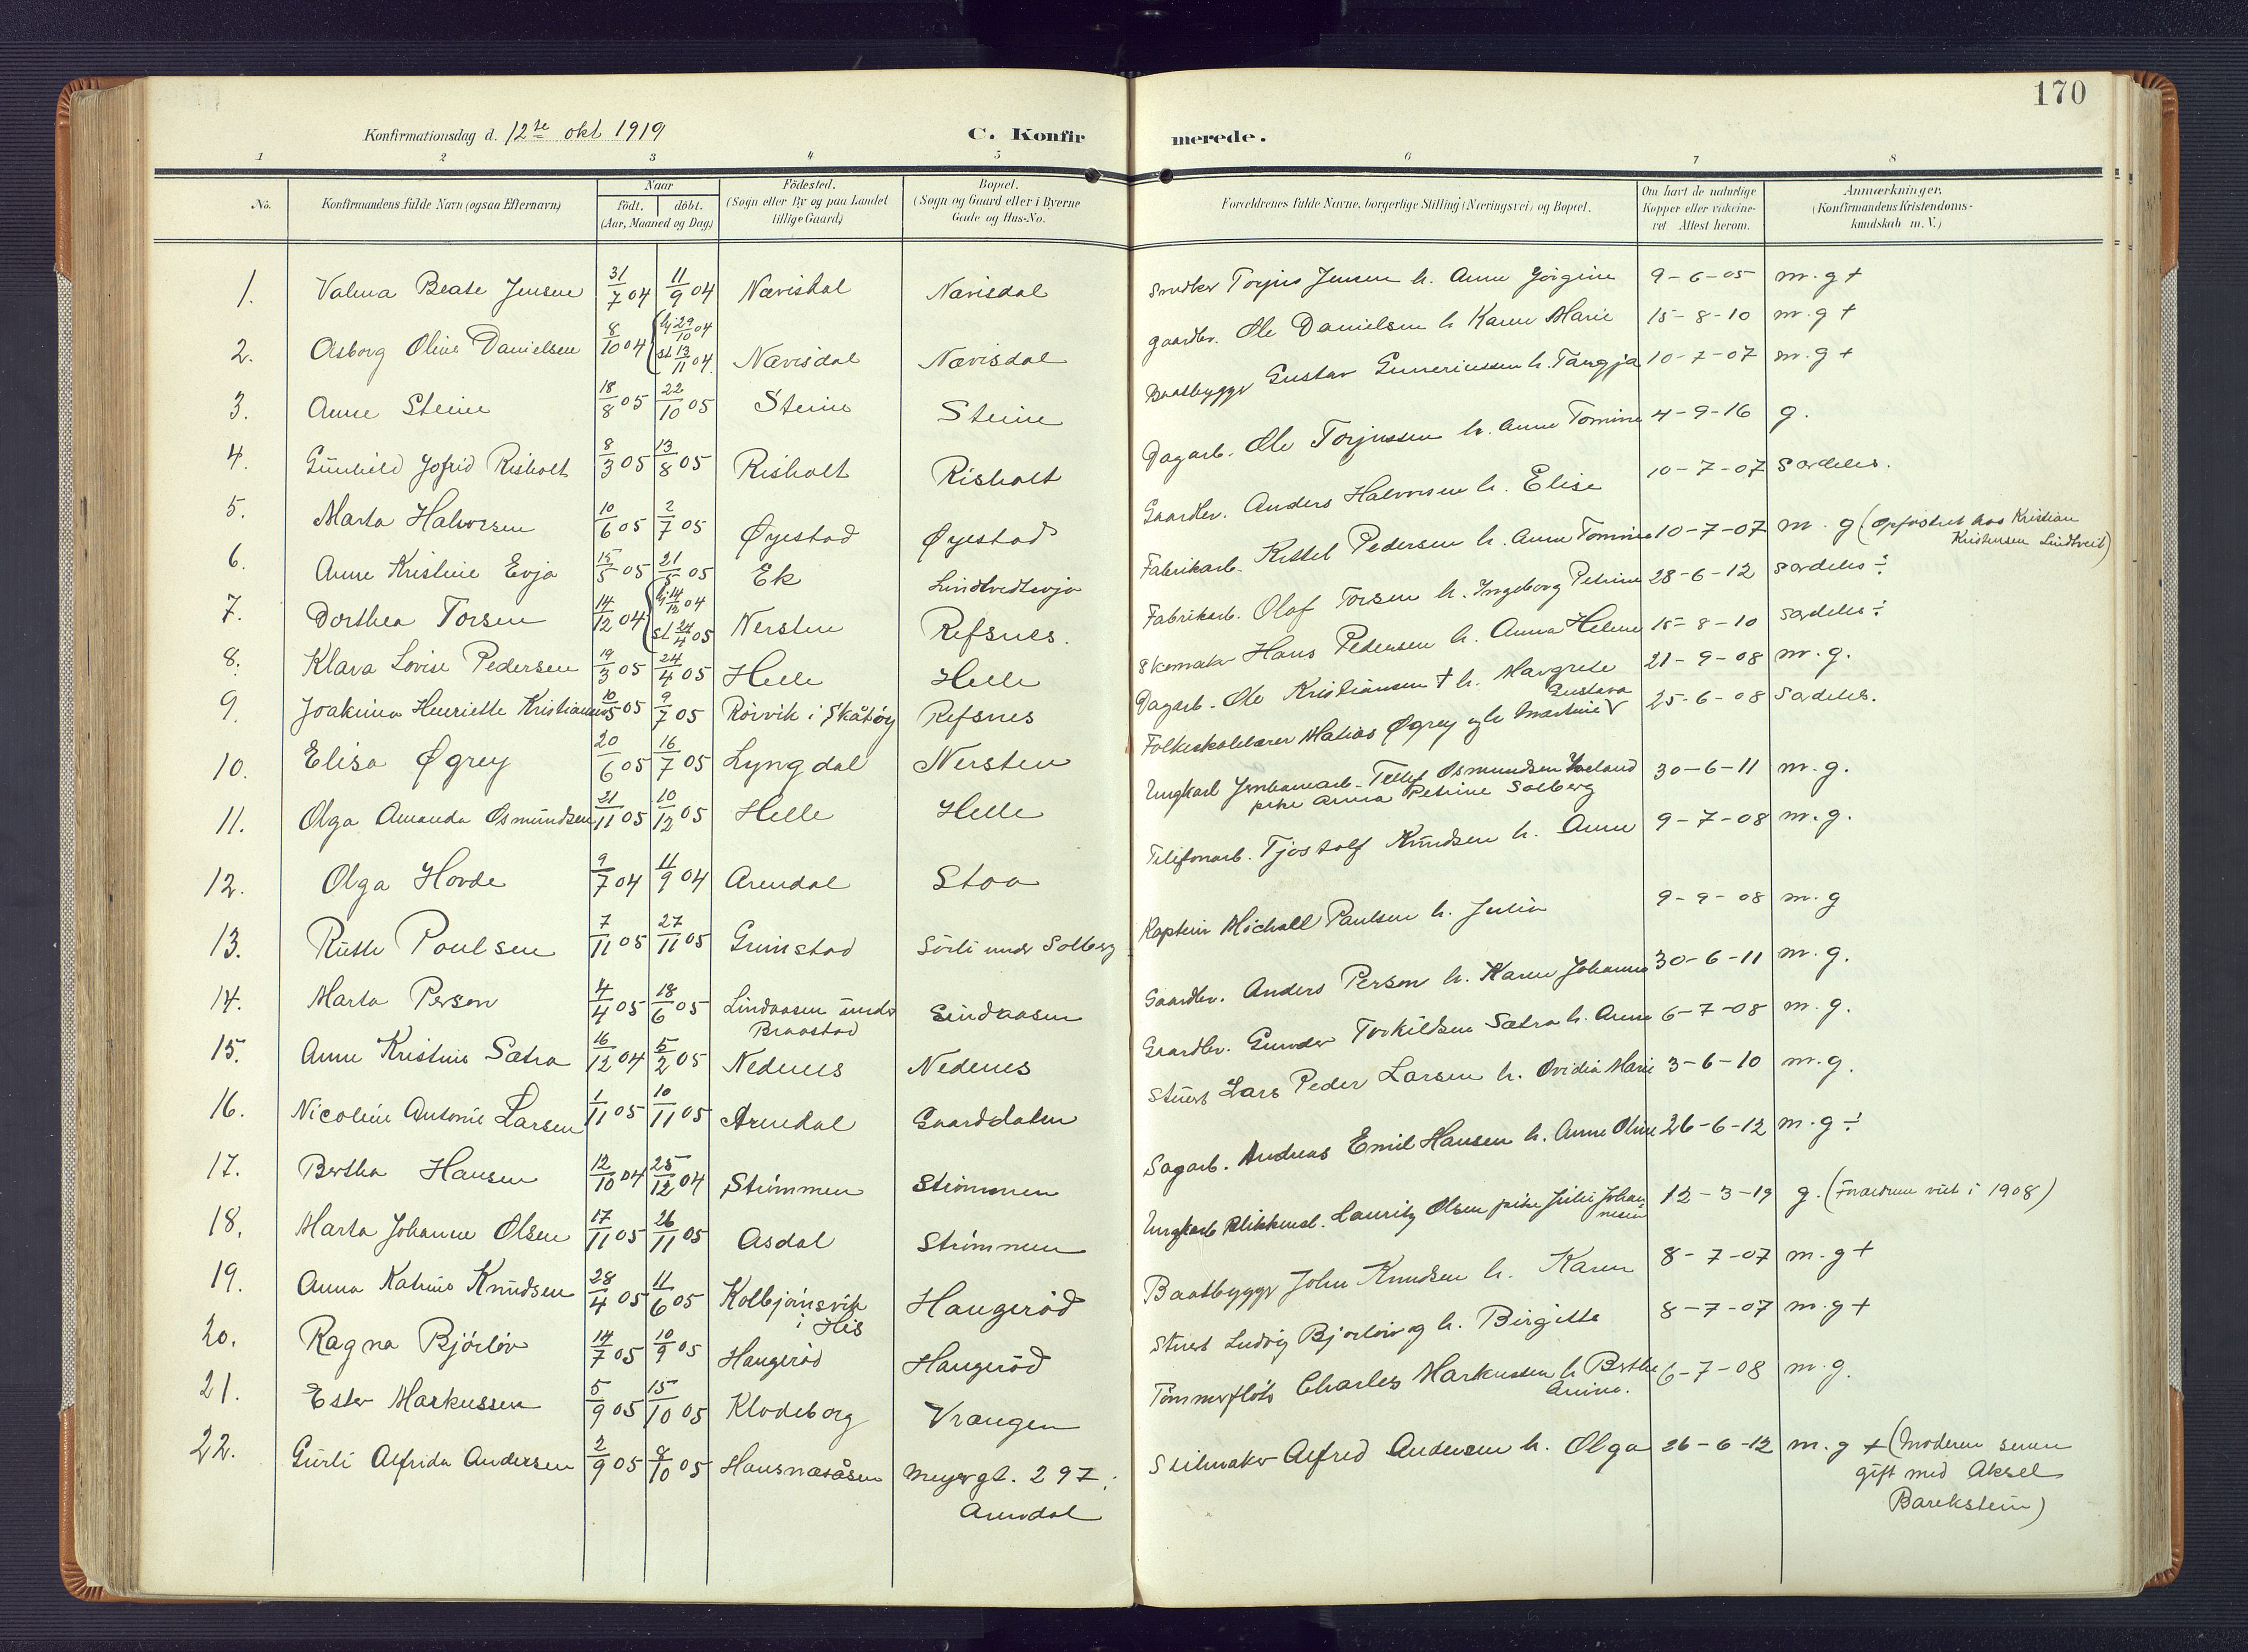 170
Konfirmationsdag d. 12te okt 1919
C. Konfirmerede.
1 2 3 4 5 6 7 8
No. Konfirmandens fulde Navn (ogsaa Efternavn) Naar født. døbt. (Aar, Maaned og Dag) Födested. (Sogn eller By og paa Landet tillige Gaard) Bopæl. (Sogn og Gaard eller i Byerne Gade og Hus-No. Forældrenes fulde Navne, borgerlige Stilling (Næringsvei) og Bopæl. Om havt de naturlige Kopper eller vakcineret Attest herom. Anmærkninger. (Konfirmandens Kristendomskundskab m. V.)
1. Valma Beate Jensen 31/7 04 11/9 04 Nævisdal Nævisdal Snedker Torjus Jensen h. Anne Jørgine 9-6-05 m.g +
2. Asborg Oline Danielsen 8/10 04 (hj 29/10 04 st 13/11 04 Nævisdal Nævisdal gaardbr. Ole Danielsen h Karen Marie 15-8-10 m.g +
3. Anne Steine 18/8 05 22/10 05 Steine Steine Baatbygger Gustav Guneriussen h. Tangja 10-7-07 m.g +
4. Gunhild Jofrid Risholt 8/3 05 13/8 05 Risholt Risholt Dagarb. Ole Torjussen h. Anne Tomine 4-9-16 g.
5. Marta Halvorsen 10/6 05 2/7 05 Øyestad Øyestad Gaardbr. Anders Halvorsen h. Elise 10-7-07 Særdeles.
6. Anne Kristine Evja 15/5 05 21/5 05 Ek Lindtvedtevja Fabrikarb. Kittel Pedersen h. Anne Tomine 10-7-07 m.g (Opfostret hos Kristian Kristensen Lindtveit)
7. Dorthea Torsen 14/12 04 (hj 14/12 04 st 24/4 05 Nersten Refsnes. Fabrikarb. Olaf Torsen h. Ingeborg Petrine 28-6-12 Særdeles ÷
8. Klara Lovise Pedersen 19/3 05 24/4 05 Helle Helle Skomaker Hans Pedersen h. Anna Helene 15-8-10 Særdeles ÷
9. Joakima Henriette Kristiansen 10/5 05 9/7 05 Rörvik i Skåtöy Refsnes Dagarb. Ole Kristiansen † h. Margrete Gustava 21-9-08 m.g.
10. Elisa Øgrey 20/6 05 16/7 05 Lyngdal Nersten Folkeskolelærer Matias Øgrey og h Martine 25-6-08 Særdeles.
11. Olga Amanda Osmundsen 21/11 05 10/12 05 Helle Helle Ungkarl Jernbanearb. Tellef Osmundsen pike Anna Petrine Solberg 30-6-11 m.g.
12. Olga Hovde 9/7 04 11/9 04 Arendal Stoa Telefonarb. Tjostolf Knudsen h. Anne 9-7-08 m.g.
13. Ruth Poulsen 7/11 05 27/11 05 Grimstad Sörli under Solberg Kaptein Michael Paulsen h. Julia 9-9-08 m.g
14. Marta Person 4/4 05 18/6 05 Lindaasen under Braastad Lindaasen Gaardbr. Anders Person h. Karen Johanne 30-6-11 m.g.
15. Anne Kristine Sætra 16/12 04 5/2 05 Nedenes Nedenes Gaardbr. Gunder Torkildsen Sætra h. Anne 6-7-08 m.g.
16. Nicoline Antonie Larsen 1/11 05 10/11 05 Arendal Gaarddalen Stuert Lars Peder Larsen h. Ovidia Marie 3-6-10 m.g.
17. Bertha Hansen 12/10 04 25/12 04 Strömmen Strömmen Sagarb. Andreas Emil Hansen h. Anne Oline 26-6-12 m.g ÷
18. Marta Johanne Olsen 17/11 05 26/11 05 Asdal Strömmen Ungkarl Blikkensl. Lauritz Olsen pike Julie Johannesen 12-3-19 g. (Forældrene viet i 1908)
19. Anna Katrine Knudsen 28/4 05 11/6 05 Kolbjörnsvik i His Haugeröd Baatbygger John Knudsen h. Karen 8-7-07 m.g +
20. Ragna Björlöv 14/7 05 10/9 05 Haugeröd Haugeröd Stuert Ludvig Bjorlöv og h. Birgitte 8-7-07 m.g +
21. Ester Markussen 5/9 05 15/10 05 Klodeborg Vrangen Tömmerfløter Charles Markussen h Berthe Anine. 6-7-08 m.g.
22. Gurli Alfrida Andersen 2/9 05 8/10 05 Hausnæsåsen Meyergt. 297; Arendal Seilmaker Alfred Andersen h. Olga 26-6-12 m.g + (Moderen senere gift med Aksel Barekstein)